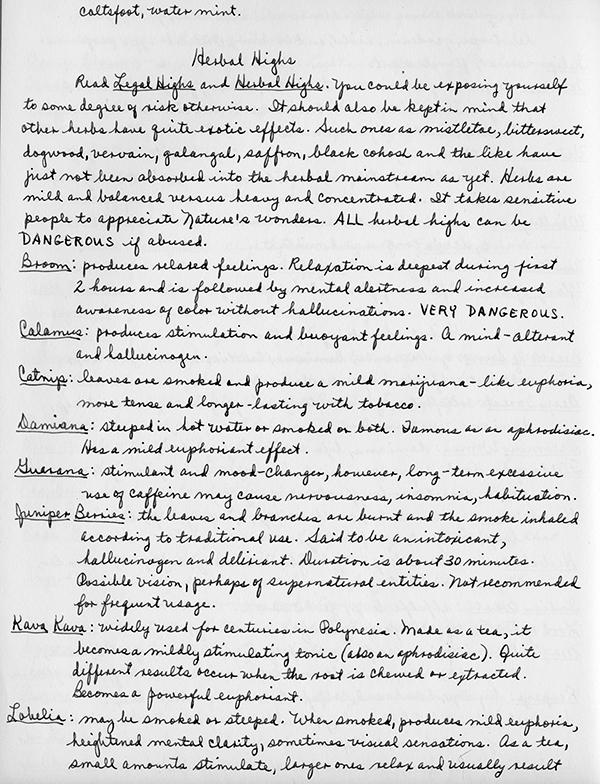 coltsfoot, water mint.
Herbal Highs
Read Legal Highs and Herbal Highs. You could be exposing yourself
to some degree of risk otherwise. It should also be kept in mind that
other herbs have quite exotic effects. Such ones as mistletoe, bittersweet,
dogwood, vervain, galangal, saffron, black cohosh and the like have
just not been absorbed into the herbal mainstream as yet. Herbs are
mild and balanced versus heavy and concentrated. It takes sensitive
people to appreciate Nature's wonders. ALL herbal highs can be
DANGEROUS if abused.
Broom: produces relaxed feelings. Relaxation is deepest during first
2 hours and is followed by mental alertness and increased
awareness of color without hallucinations. VERY DANGEROUS.
Calamus: produces stimulation and buoyant feelings. A mind-alterant
and hallucinogen.
Catnip: leaves are smoked and produce a mild marijuana-like euphoria,
more tense and longer-lasting with tobacco.
Damiana: steeped in hot water or smoked or both. Famous as an aphrodisiac.
Has a mild euphoriant effect.
Guarana: stimulant and mood-changer, however, long-term excessive
use of caffeine may cause nervousness, insomnia, habituation.
Juniper Berries: the leaves and branches are burnt and the smoke inhaled
according to traditional use. Said to be an intoxicant,
hallucinogen and deliriant. Duration is about 30 minutes.
Possible vision, perhaps of supernatural entities. Not recommended
for frequent usage.
Kava Kava: widely used for centuries in Polynesia. Made as a tea, it
becomes a mildly stimulating tonic (also an aphrodisiac). Quite
different results occur when the root is chewed or extracted.
Becomes a powerful euphoriant.
Lobelia: may be smoked or steeped. When smoked, produces mild euphoria,
heightened mental clarity, sometimes visual sensations. As a tea,
small amounts stimulate, larger ones relax and usually result